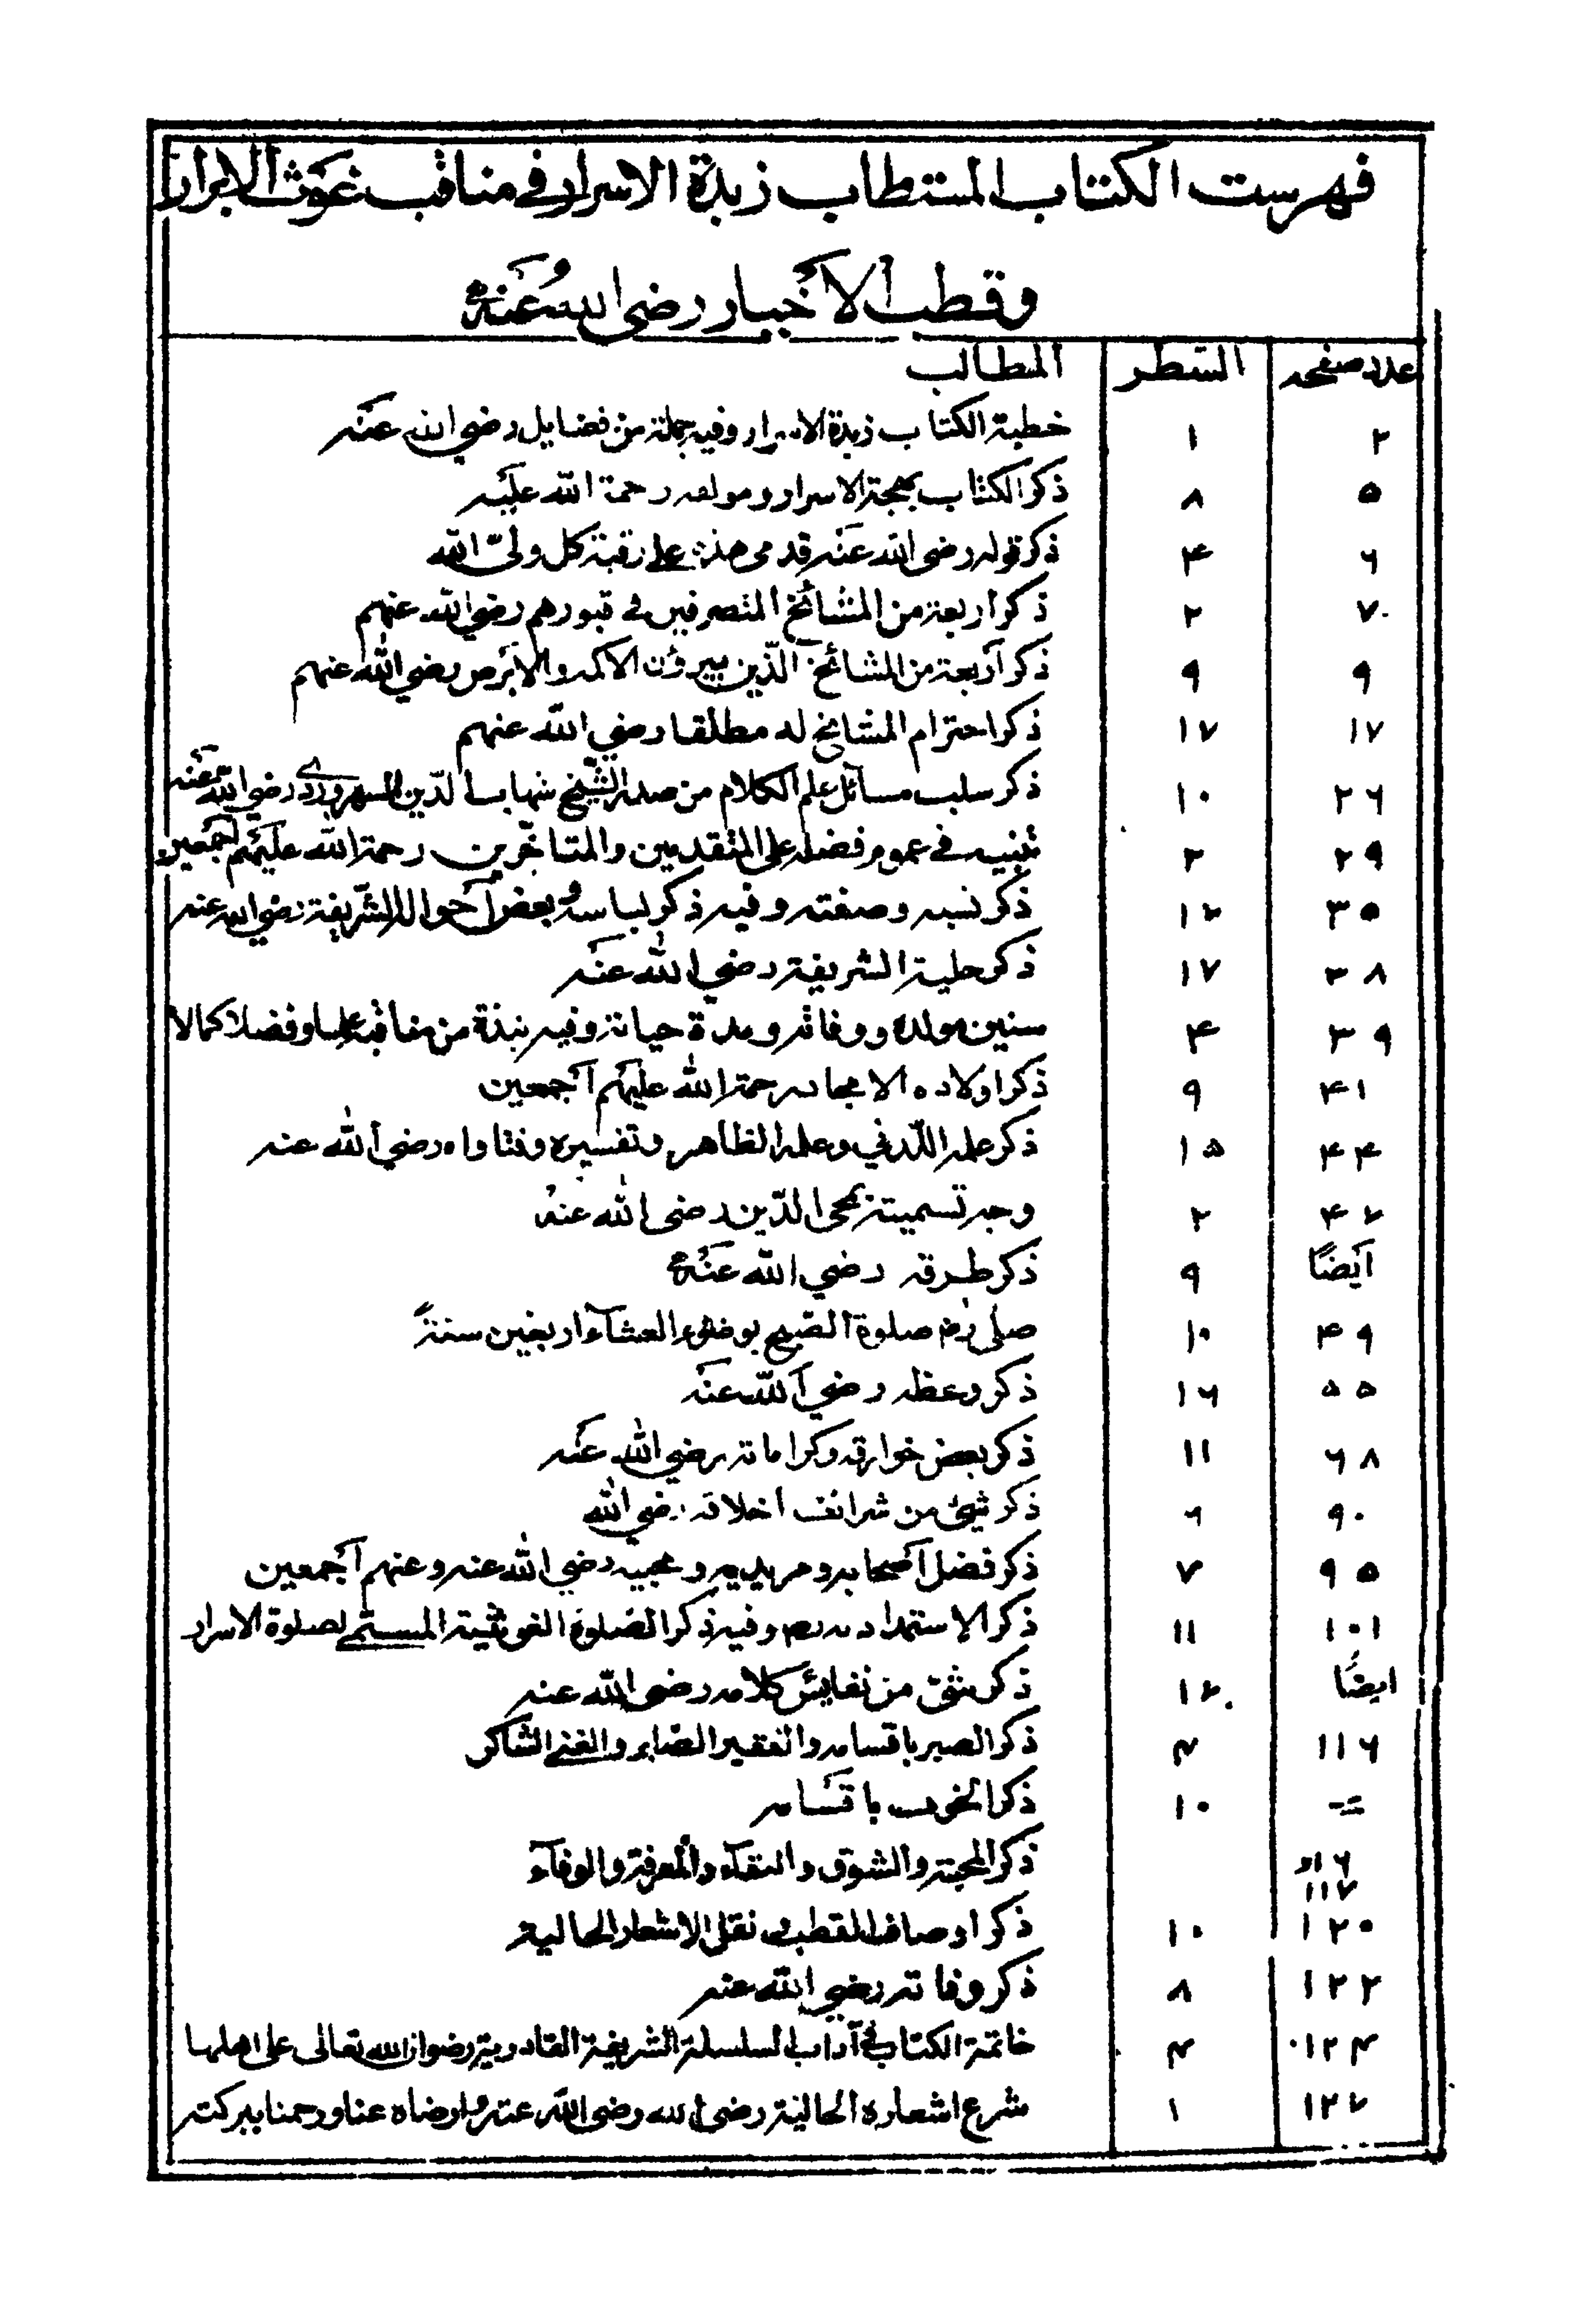 فهرست الكتاب المستطاب زبدة الاسرار فی مناقب غوث الابرار
وقطب الاخیار رضی الله عنه
عدد صفحه السطر المطالب
۲ ۱ خطبة الكتاب زبدة الاسرار وفيه جملة من فضايل رضي الله عنه
۵ ۸ ذكر الكتاب بهجة الاسرار ومولفه رحمة الله عليه
۶ ۴ ذكر قوله رضی الله عنه قدمی هذه علی رقبة كل ولیّ الله
۷ ۲ ذكر أربعة من المشائخ المتصرفين فی قبورهم رضي الله عنهم
۹ ۹ ذكر أربعة من المشائخ الّذين يبرؤن الاكمه والابرص رضي الله عنهم
۱۷ ۱۷ ذكر احترام المشائخ له مطلقا رضي الله عنهم
۲۶ ۱۰ ذكر سلب مسائل علم الكلام من صدر الشّيخ شهاب الدّين السهروردی رضي الله عنه
۲۹ ۲ تنبيه فی عموم فضله علی المتقدمين والمتاخّرين رحمة الله عليهم اجمعين
۳۵ ۱۲ ذكر نسبه وصفته وفيه ذكر لباسه وبعض أحواله الشّريفة رضي الله عنه
۳۸ ۱۷ ذكر حلية الشريفة رضي الله عنه
۳۹ ۴ سنين مولده ووفاته ومدة حياته وفيه نبذة من مناقبه علما وفضلا كمالا
۴۱ ۹ ذكر اولاده الامجاد رحمة الله عليهم أجمعين
۴۴ ۱۵ ذكر علمه اللّدني وعلمه الظاهر وتفسيره وفتاواه رضي الله عنه
۴۷ ۲ وجه تسميته بمحی الدّين رضی الله عنه
أيضًا ۹ ذكر طرقه رضي الله عنه
۴۹ ۱۰ صلی رضه صلوة الصّبح بوضوء العشاء اربعين سنةً
۵۵ ۱۶ ذكر وعظه رضي الله عنه
۶۸ ۱۱ ذكر بعض خوارقه وكراماته رضي الله عنه
۹۰ ۶ ذكر شیئ من شرائف أخلاقه رضي الله
۹۵ ۷ ذكر فضل أصحابه ومريديه ومحبيه رضي الله عنه وعنهم أجمعين
۱۰۱ ۱۱ ذكر الاستمداد به رضه وفيه ذكر الصّلوة الغوثية المستمی لصلوة الاسرار
ايضًا ۱۲ ذكر شئ من نفايس كلامه رضی الله عنه
۱۱۶ ۴ ذكر الصبر باقسامه والفقير الصّابر والغنی الشّاكر
= ۱۰ ذكر الخوف باقسامه
۱۱۶ و
۱۱۷ ذكر المحبّة والشوق والبقاء والمعرفة والوفاء
۱۲۰ ۱۰ ذكر اوصاف القطب فی نقل الاشعار الحالية
۱۲۲ ۸ ذكر وفاته رضي الله عنه
۱۲۴ ۴ خاتمة الكتاب فی آداب السلسلة الشريفة القادرية رضوان الله تعالی علی اهلها
۱۲۷ ۱ شرع اشعاره الحالية رضی الله عنه وارضاه عنا ورحمنا ببركته